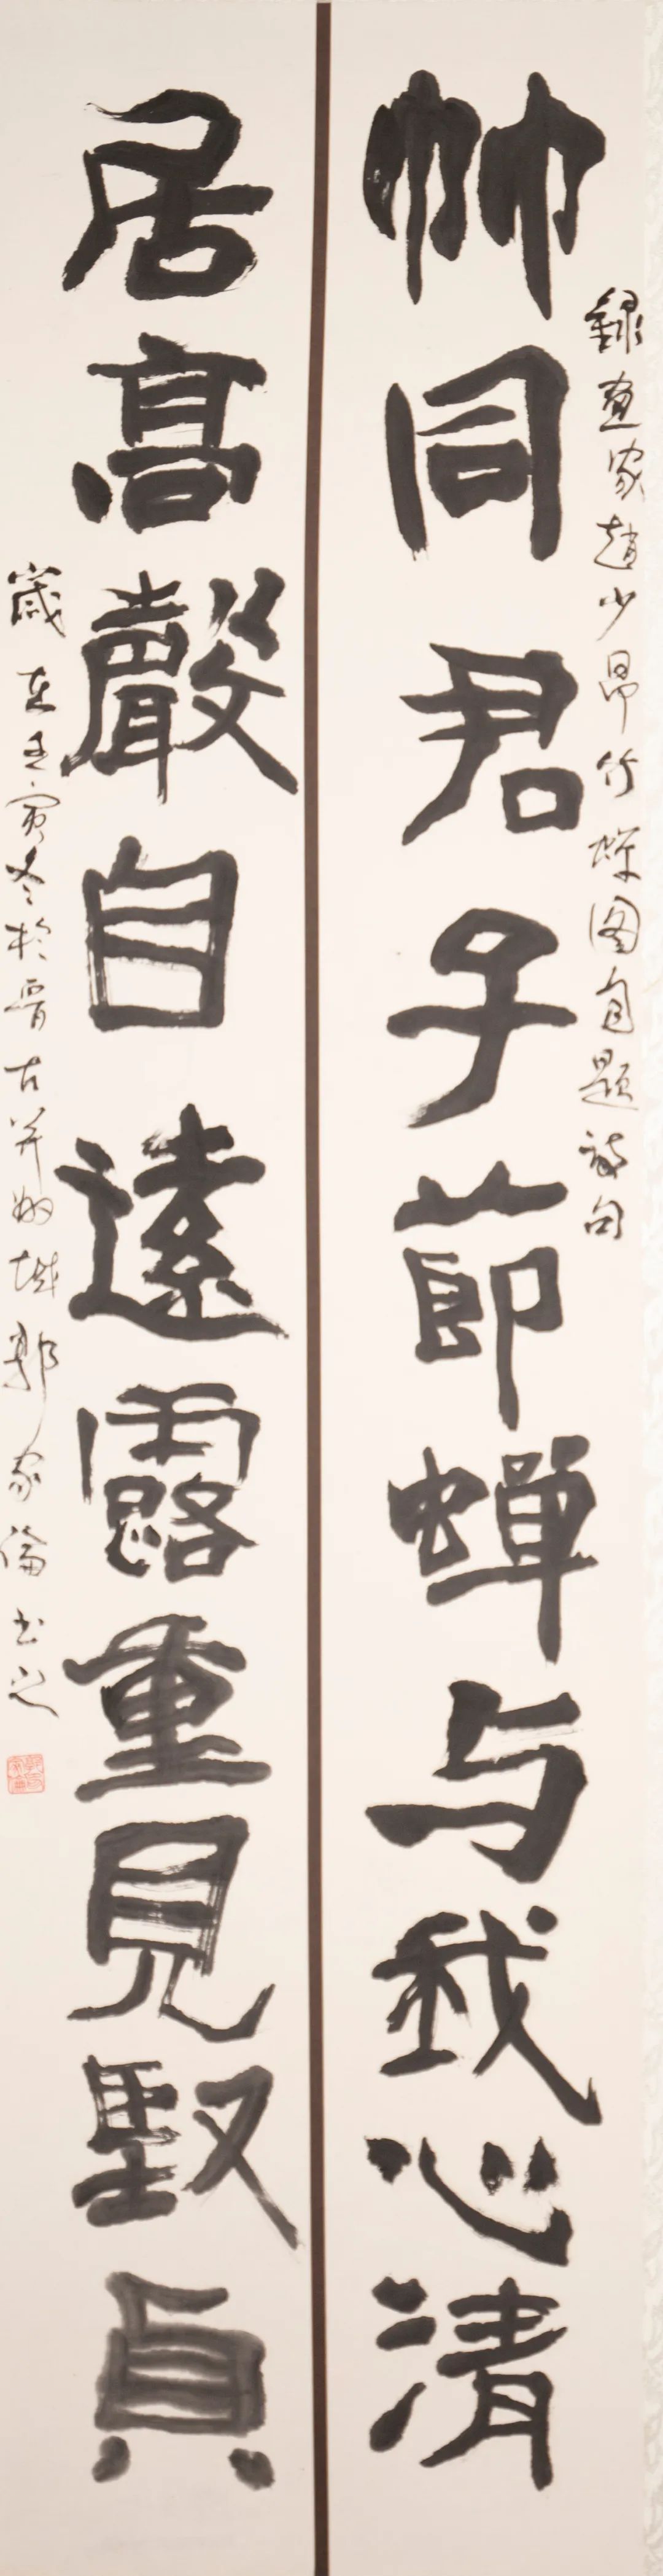 録画家趙少昂竹蟬图自題詩句
竹同君子節蟬与我心清
居高聲自遠露重見堅貞
歲在壬寅冬於晋古并州城郭家谕书之